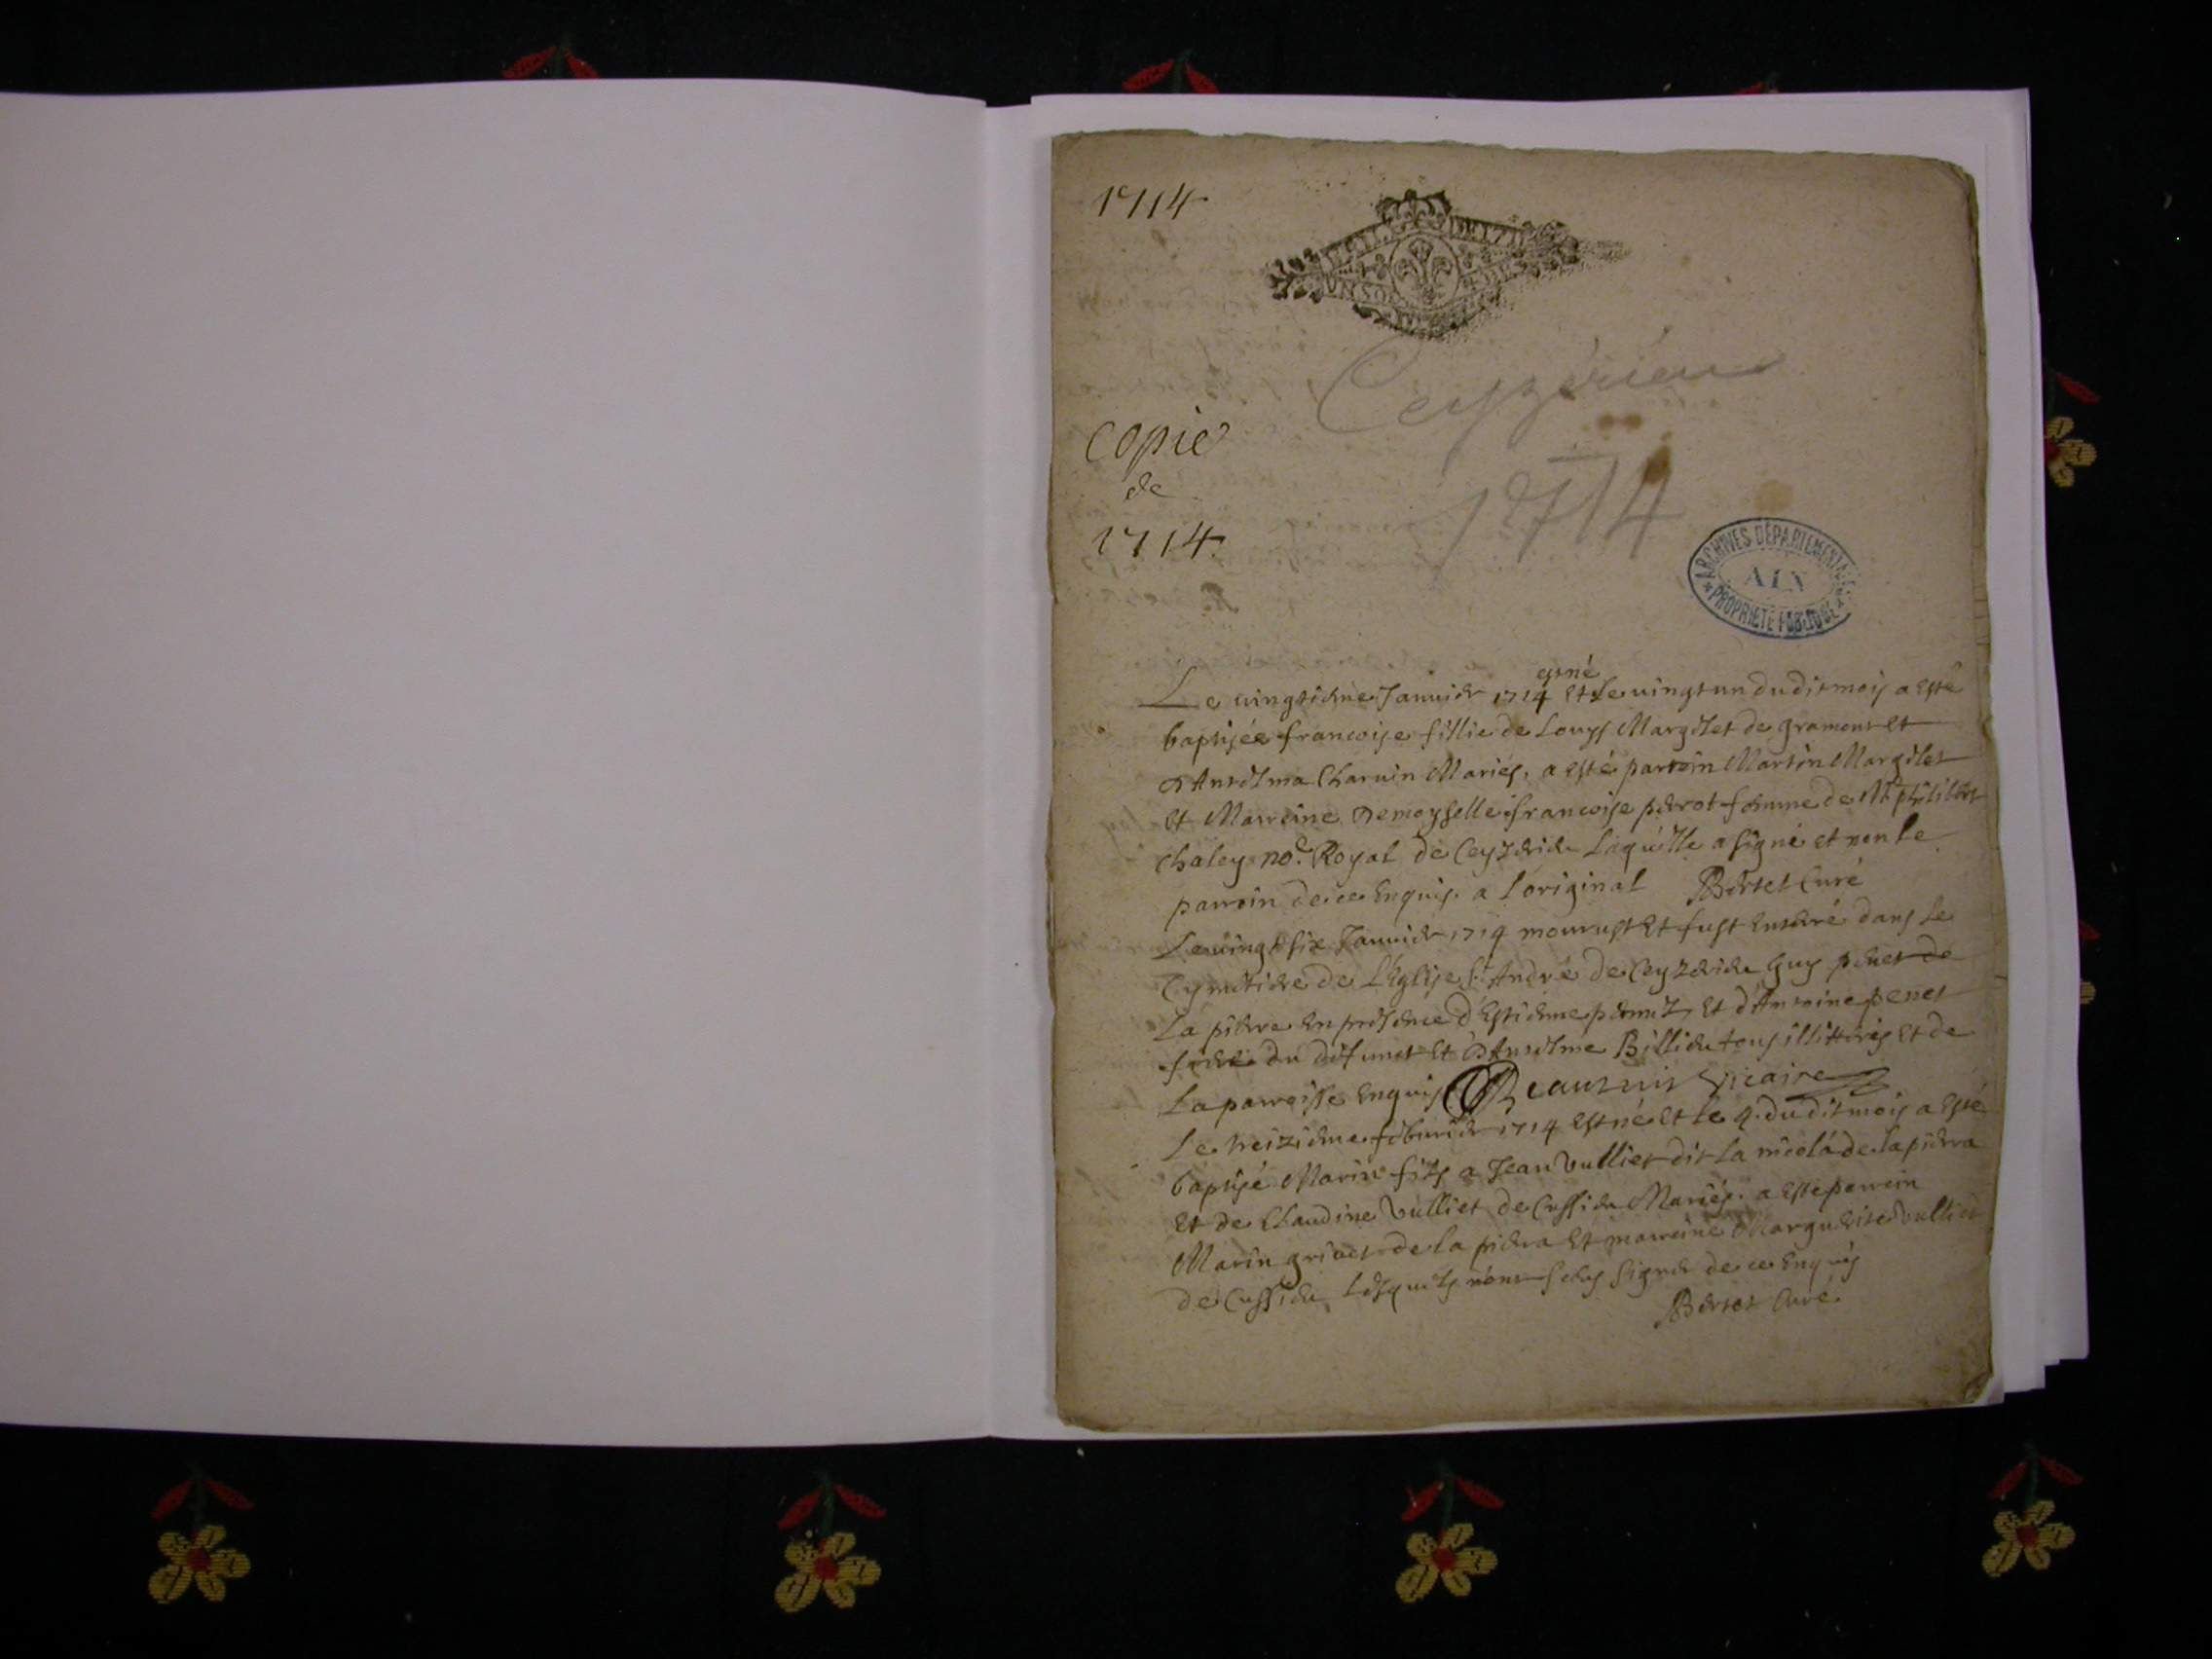 1714
UN SOL
Ceyzérieu
1714
Copie
de
1714.
ARCHIVES DÉPARTEMENTALES
AIN
PROPRIÉTÉ PUBLIQUE
est né
Le vingtieme Janvier 1714 et le vingt un du dit mois a esté
baptisée francoise fillie de Louys Margilet de gramont et
d'Antelma Charvin Mariés, a esté parroin Martin Margilet
et Marreine Demoyselle francoise perrot femme de Mr philibert
Chaley no.e Royal de Ceyzerieu Laquelle a signé et non le
parroin de ce Enquis. a L'original Bertet Curé
Le vingt six Janvier 1714 mourust et fust Enterré dans le
Cymetiere de L'Eglise St André de Ceyzerieu Guy penet de
La pierre En presence d'Estienne et d'Antoine penet
du defunct et d'Antelme Billieu tous illitterés et de
La parroisse Enquis Vicaire
Le treizieme febvrier 1714 est né et le 4. du dit mois a esté
baptisé Marin fils a Jean Vulliet dit La nicolá de la pierra
et de Claudine Vulliet de Cussieu Mariés. a este parrein
Marin grivet de la pierra et marreine Marguerite Vulliet
de Cussieu Lesquels n'ont sceus signer de ce Enquis
Bertet Curé